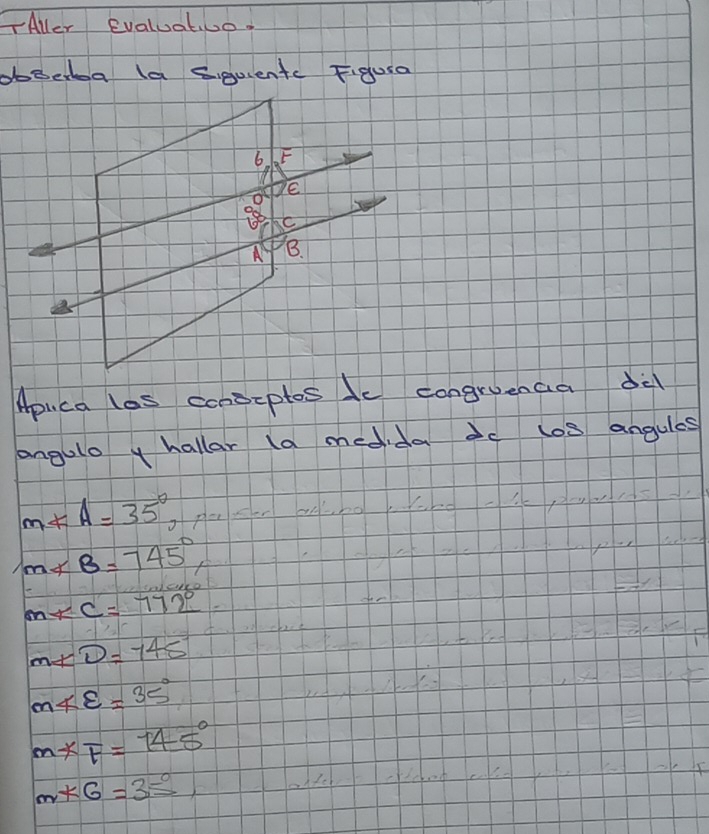 TAller Evaluativo.
obserba la siguiente Figura
6 F
D E
68° C
A B.
Aplica los conseptos de congruencia del
angulo y hallar la medida de los angulos
m∢ A = 35°,
m∢ B = 145°,
m∢ C = 112°
m∢ D = 145
m∢ E = 35°
m∢ F = 145°
m∢ G = 35°,